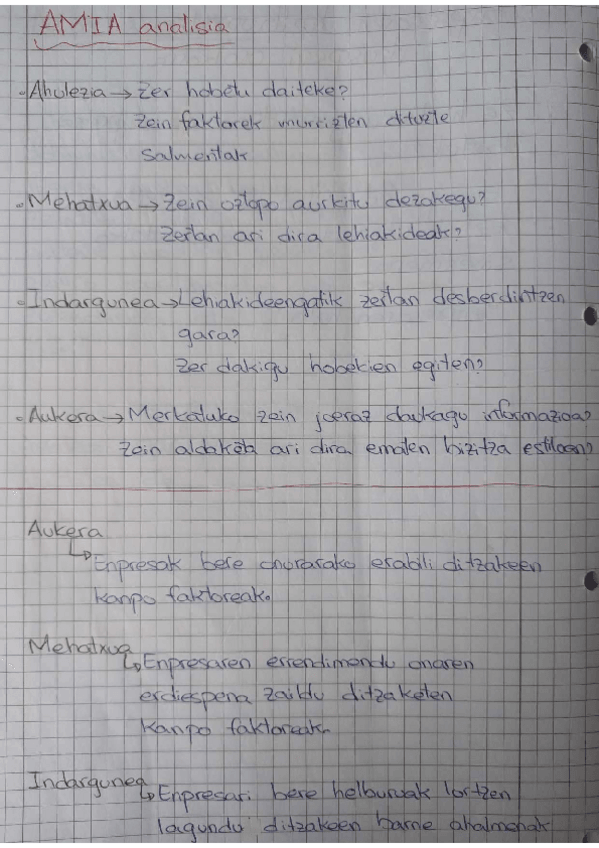 AMIA analisia
• Ahulezia → Zer hobetu daiteke?
Zein faktorek murrizten dituzte
salmentak
• Mehatxua → Zein oztopo aurkitu dezakegu?
Zertan ari dira lehiakideak?
• Indargunea → Lehiakideengatik zertan desberdintzen
gara?
Zer dakigu hobekien egiten?
• Aukera → Merkatuko zein joeraz daukagu informazioa?
Zein aldaketa ari dira ematen bizitza estiloen?
Aukera
↳ Enpresak bere onurarako erabili ditzakeen
kanpo faktoreak.
Mehatxua
↳ Enpresaren errendimendu onaren
erdiespena zaildu ditzaketen
kanpo faktoreak.
Indargunea
↳ Enpresari bere helburuak lortzen
lagundu ditzakeen barne ahalmenak